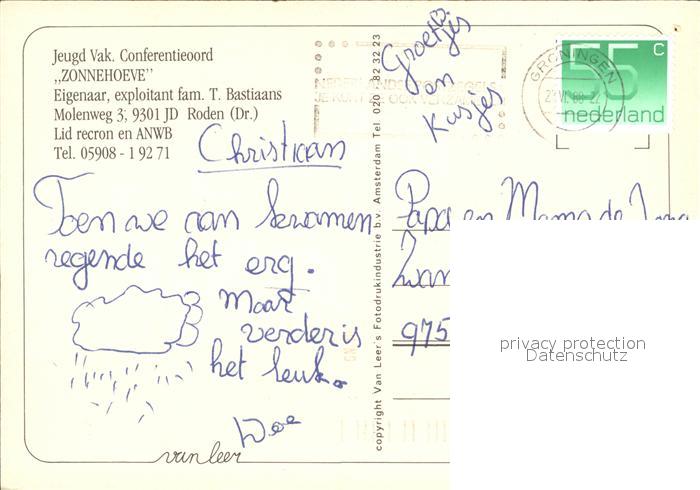 Jeugd Vak. Conferentieoord
„ZONNEHOEVE"
Eigenaar, exploitant fam. T. Bastiaans
Molenweg 3, 9301 JD Roden (Dr.)
Lid recron en ANWB
Tel. 05908 - 1 92 71
Christiaan
Toen we aan kwamen
regende het erg.
Maar
verder is
het leuk.
Doe
van leer
copyright Van Leer's Fotodrukindustrie b.v. Amsterdam Tel 020 - 82 32 23
Groetjes
en
Kusjes
GRONINGEN
55 c
nederland
Papa en Mama de
Zwan
975
privacy protection
Datenschutz